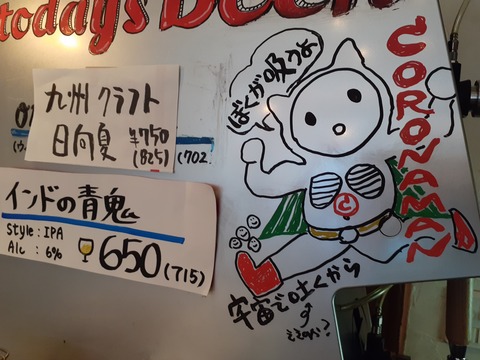 todays Beer
ぼくが吸うよ
CORONAMAN
九州 クラフト
日向夏 ¥750
(825)
(702
インドの青鬼
Style : IPA
Alc : 6%
650 (715)
と
宇宙で吐くから
ええのか?